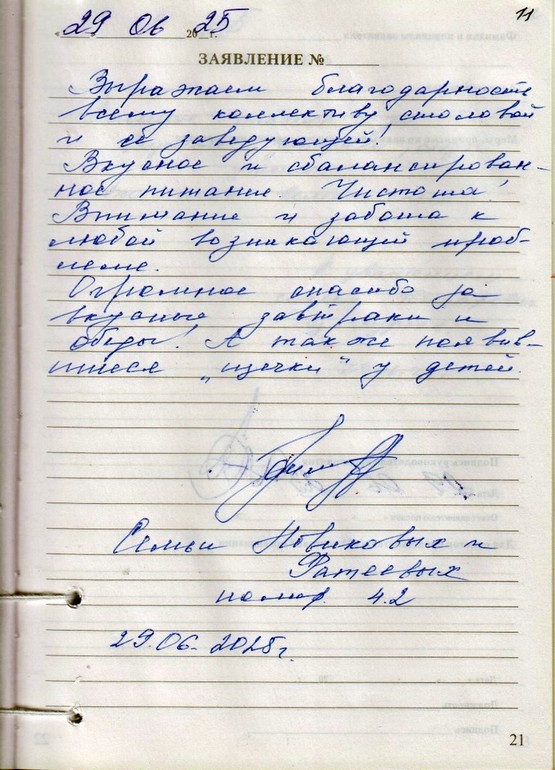 29 06 2025 г. 11
ЗАЯВЛЕНИЕ №
Выражаем благодарность
всему коллективу столовой
и ее заведующей!
Вкусное и сбалансирован-
ное питание. Чистота!
Внимание и забота к
любой возникающей проб-
леме.
Огромное спасибо за
вкусные завтраки и
обеды! А так же появив-
шиеся „щечки" у детей.
Семьи Новиковых и
Фатеевых
номер 4.2
29.06.2025 г.
21